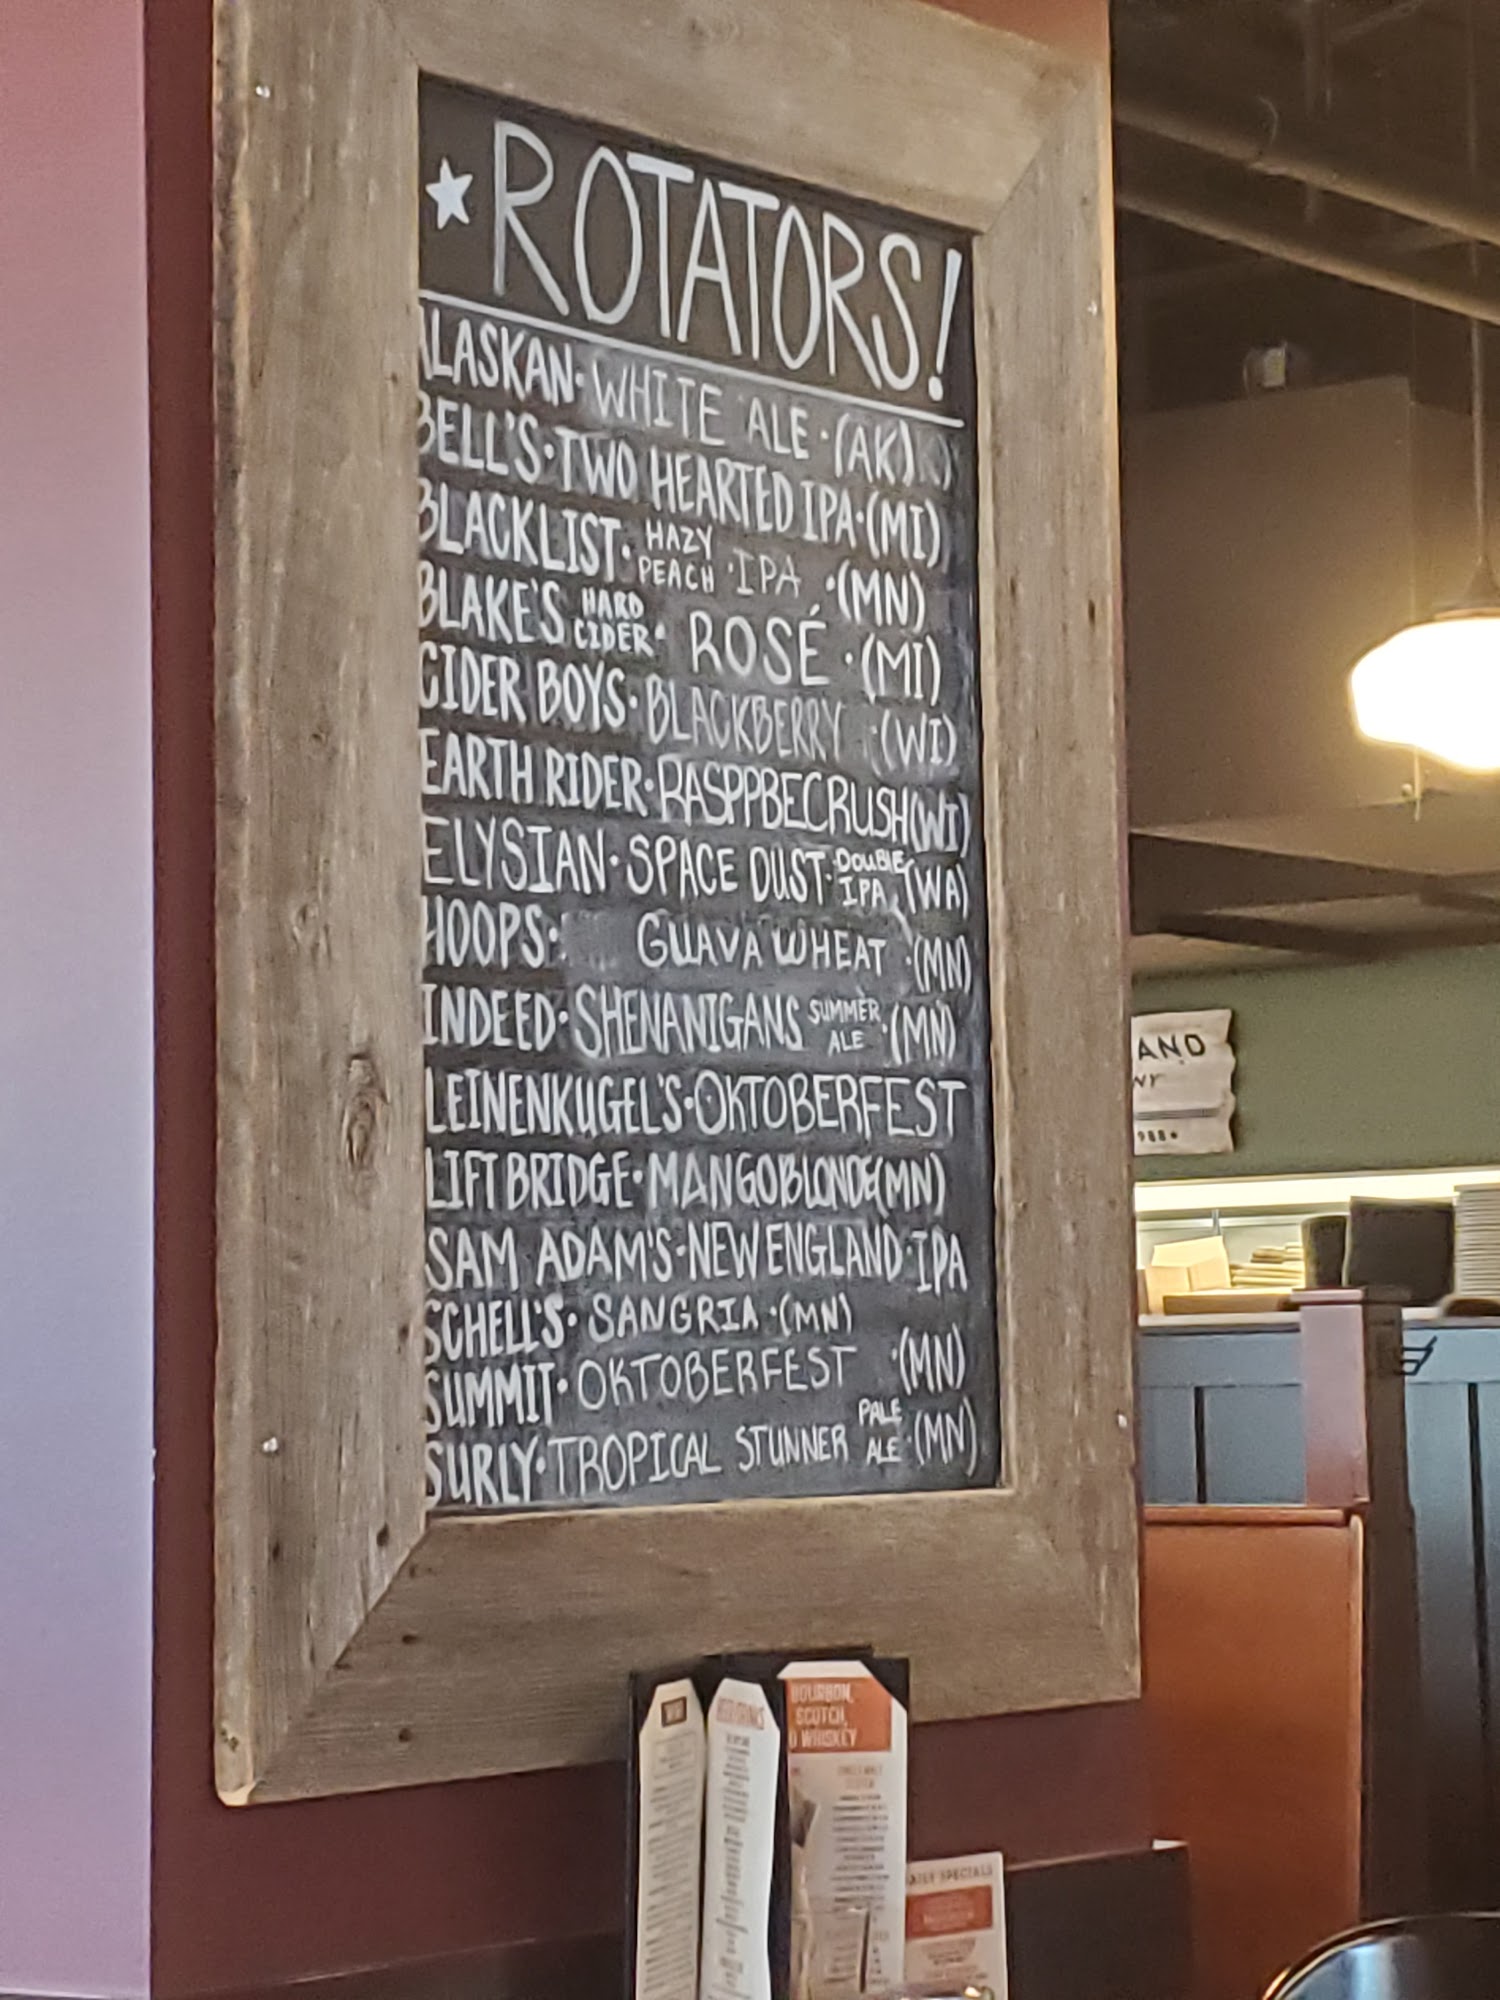 ROTATORS!
ALASKAN · WHITE ALE · (AK)
BELL'S · TWO HEARTED IPA · (MI)
BLACKLIST · HAZY PEACH · IPA · (MN)
BLAKE'S HARD CIDER · ROSÉ · (MI)
CIDER BOYS · BLACKBERRY · (WI)
EARTH RIDER · RASPPBECRUSH (WI)
ELYSIAN · SPACE DUST · DOUBLE IPA · (WA)
HOOPS · GUAVA WHEAT · (MN)
INDEED · SHENANIGANS SUMMER ALE · (MN)
LEINENKUGEL'S · OKTOBERFEST
LIFT BRIDGE · MANGO BLONDE (MN)
SAM ADAM'S · NEW ENGLAND · IPA
SCHELL'S · SANGRIA · (MN)
SUMMIT · OKTOBERFEST · (MN)
SURLY · TROPICAL STUNNER PALE ALE · (MN)
AND
NY
988
BOURBON,
SCOTCH,
WHISKEY
DAILY SPECIALS